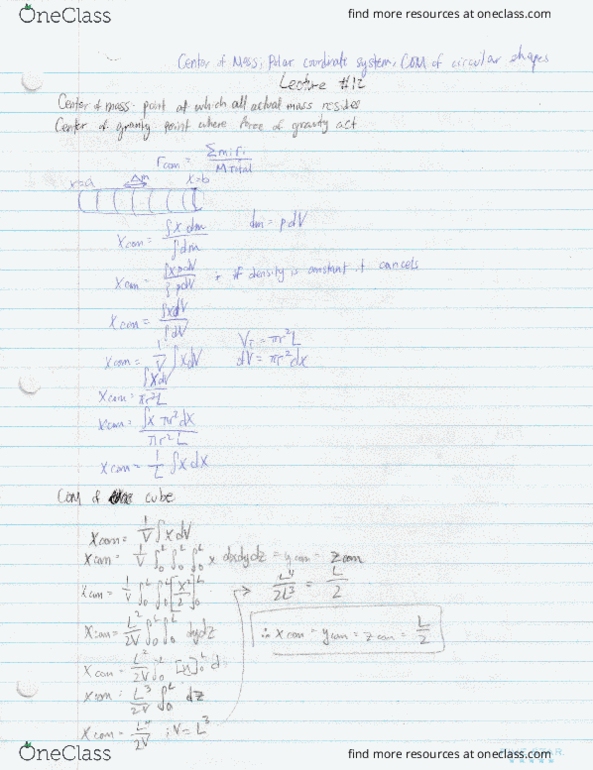 OneClass find more resources at oneclass.com
Center of Mass, Polar coordinate system, COM of circular shapes
Lecture #12
Center of mass: point at which all actual mass resides
Center of gravity: point where force of gravity act
r_com = Σmiri / M Total
x=a Δm x=b
x com = ∫x dm / ∫dm dm = ρdV
x com = ∫xρdV / ∫ρdV ; if density is constant it cancels
x com = ∫xdV / ∫dV
x com = 1/V ∫xdV V_T = πr²L
dV = πr²dx
x com = ∫xdV / πr²L
x com = ∫x πr²dx / πr²L
x com = 1/L ∫xdx
COM of cube
x com = 1/V ∫xdV
x com = 1/V ∫₀ᴸ ∫₀ᴸ ∫₀ᴸ x dxdydz = y com = z com
x com = 1/V ∫₀ᴸ ∫₀ᴸ [x²/2]₀ᴸ
→ L⁴/2L³ = L/2
x com = L²/2V ∫₀ᴸ ∫₀ᴸ dydz
∴ x com = y com = z com = L/2
x com = L²/2V ∫₀ᴸ [y]₀ᴸ d
x com = L³/2V ∫₀ᴸ dz
x com = L⁴/2V ; V = L³
OneClass find more resources at oneclass.com